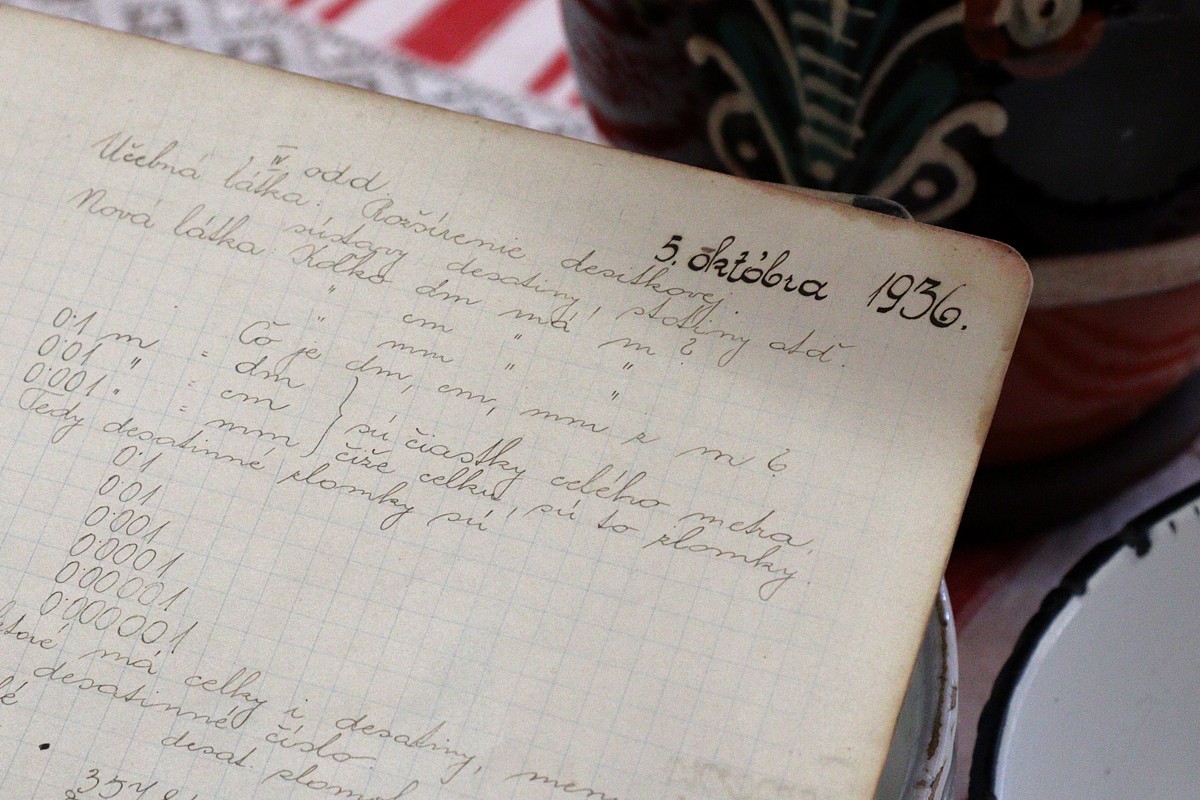 5. októbra 1936.
IV odd.
Učebná látka: Rozšírenie desitkovej
sústavy desatiny, stotiny atď.
Nová látka: Koľko dm má m?
" cm " "
" mm " "
Čo je dm, cm, mm z m?
0·1 m = dm
0·01 " = cm } sú čiastky celého metra,
0·001 " = mm čiže celku, sú to zlomky.
Tedy desatinné zlomky sú
0·1
0·01
0·001
0·0001
0·00001
0·000001
má celky i desatiny,
desatinné číslo
desat.